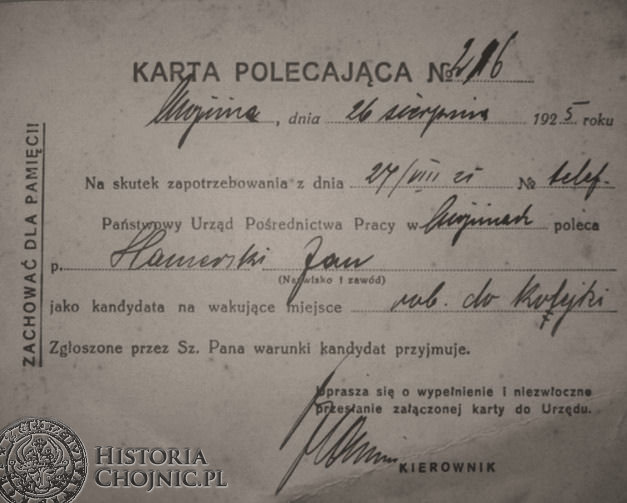 KARTA POLECAJĄCA № 216
Chojnice, dnia 26 sierpnia 1925 roku
Na skutek zapotrzebowania z dnia 27/VIII 25 № telef.
Państwowy Urząd Pośrednictwa Pracy w Chojnicach poleca
p. Jan
(Nazwisko i zawód)
jako kandydata na wakujące miejsce rob. do kolejki
Zgłoszone przez Sz. Pana warunki kandydat przyjmuje.
Uprasza się o wypełnienie i niezwłoczne
przesłanie załączonej karty do Urzędu.
KIEROWNIK
ZACHOWAĆ DLA PAMIĘCI!
HISTORIA
CHOJNIC.PL